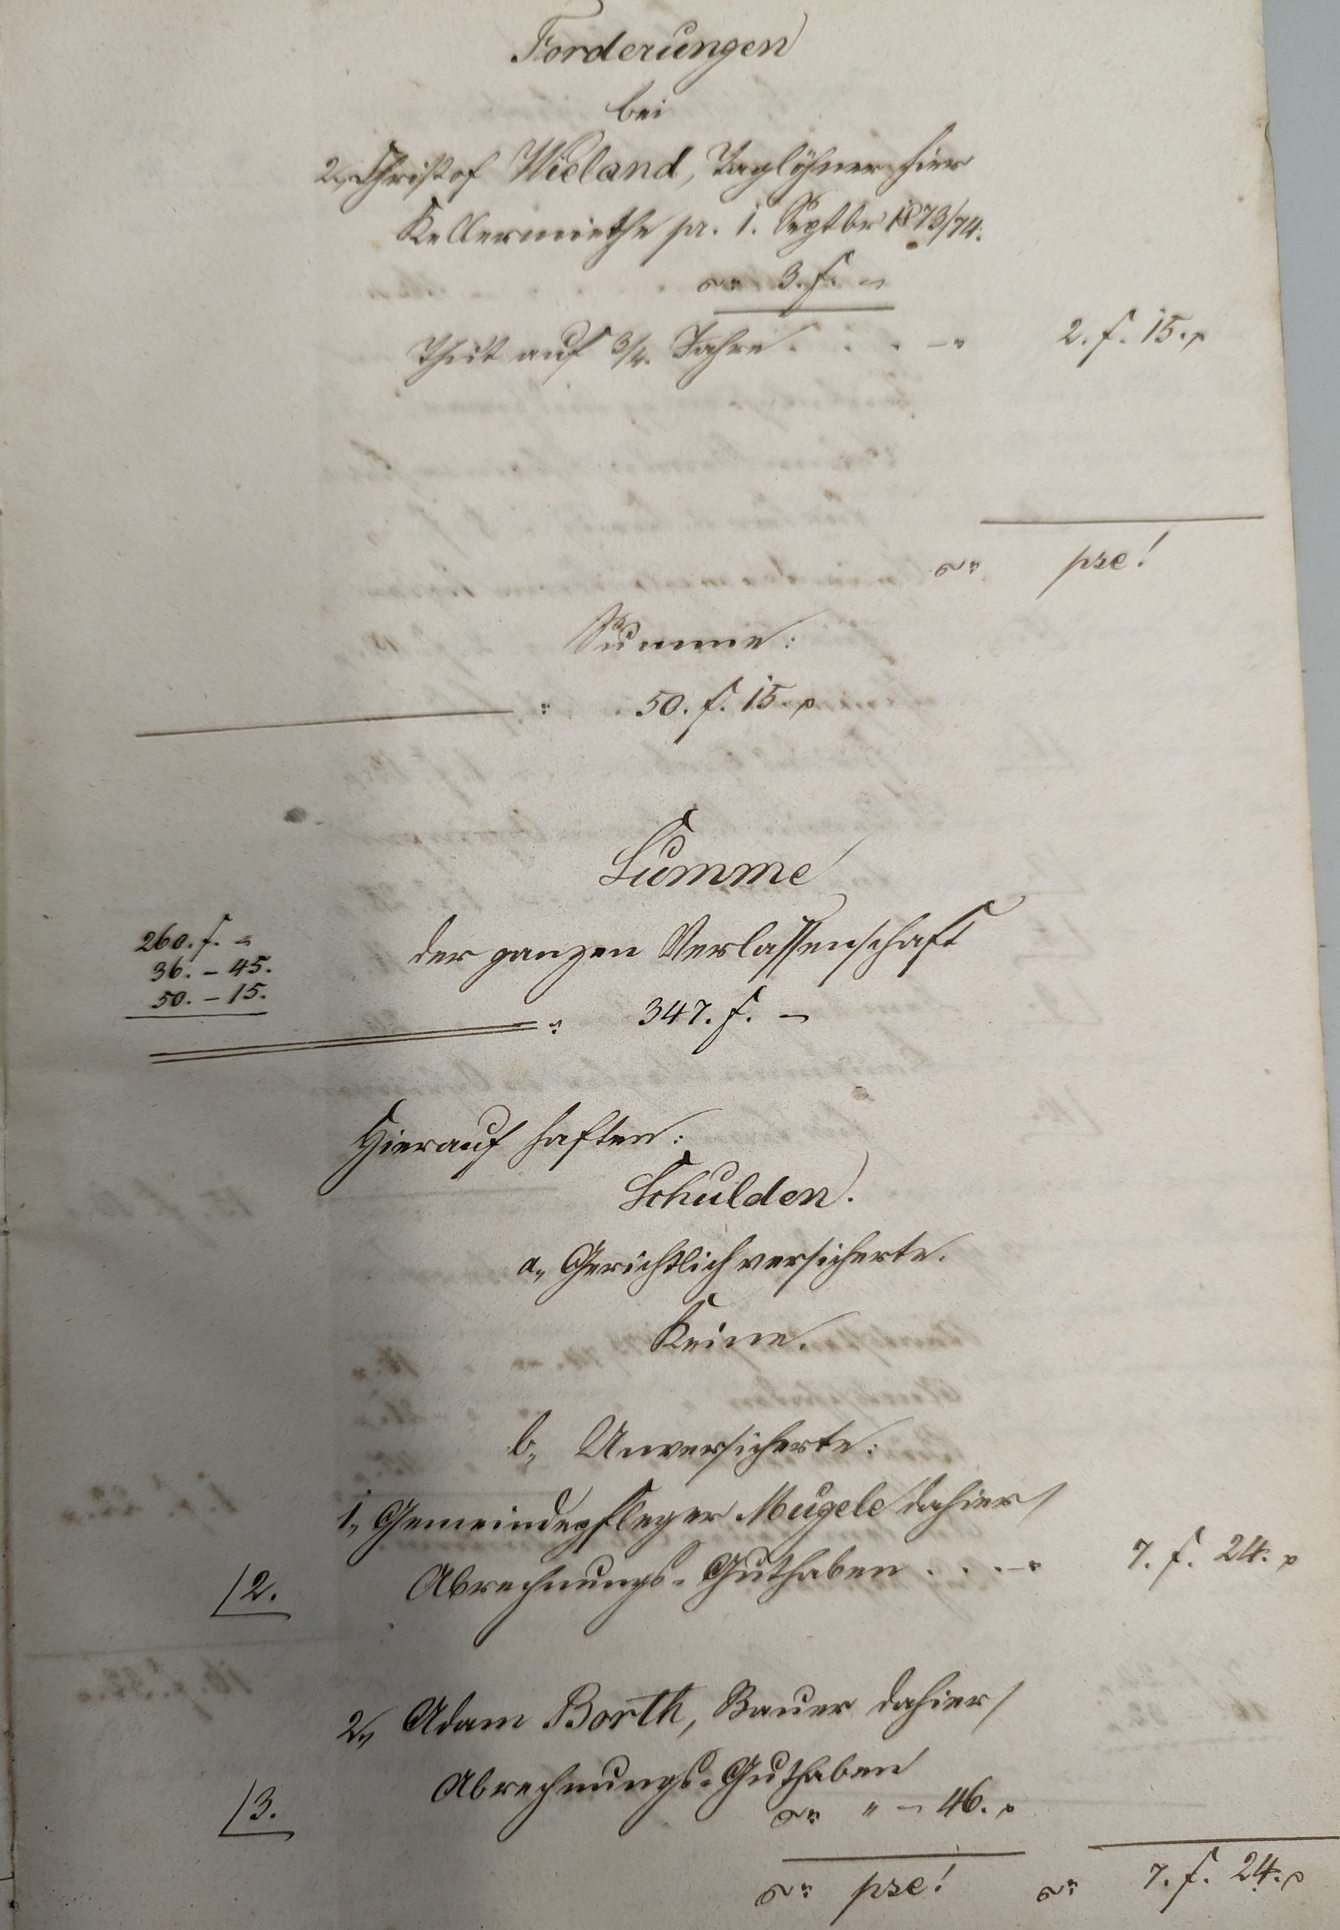 Forderungen
bei
2., Christof Wieland, Taglöhner hier
Kellermiethe pr. 1. Septbr 1873/74.
3. f. –
Thut auf 3/4. Jahre . . . – 2. f. 15.
pse!
Summe:
50. f. 15.
Summe
260. f. –
der ganzen Verlassenschaft
36. – 45.
50. – 15.
347. f. –
Hierauf haften:
Schulden.
a., Gerichtlich versicherte.
Keine.
b., Unversicherte:
1., Gemeindepfleger Mugele dahier/
/2. Abrechnungs-Guthaben . . . – 7. f. 24.
2., Adam Borth, Bauer dahier/
Abrechnungs-Guthaben
/3. " – 46.
pse! 7. f. 24.